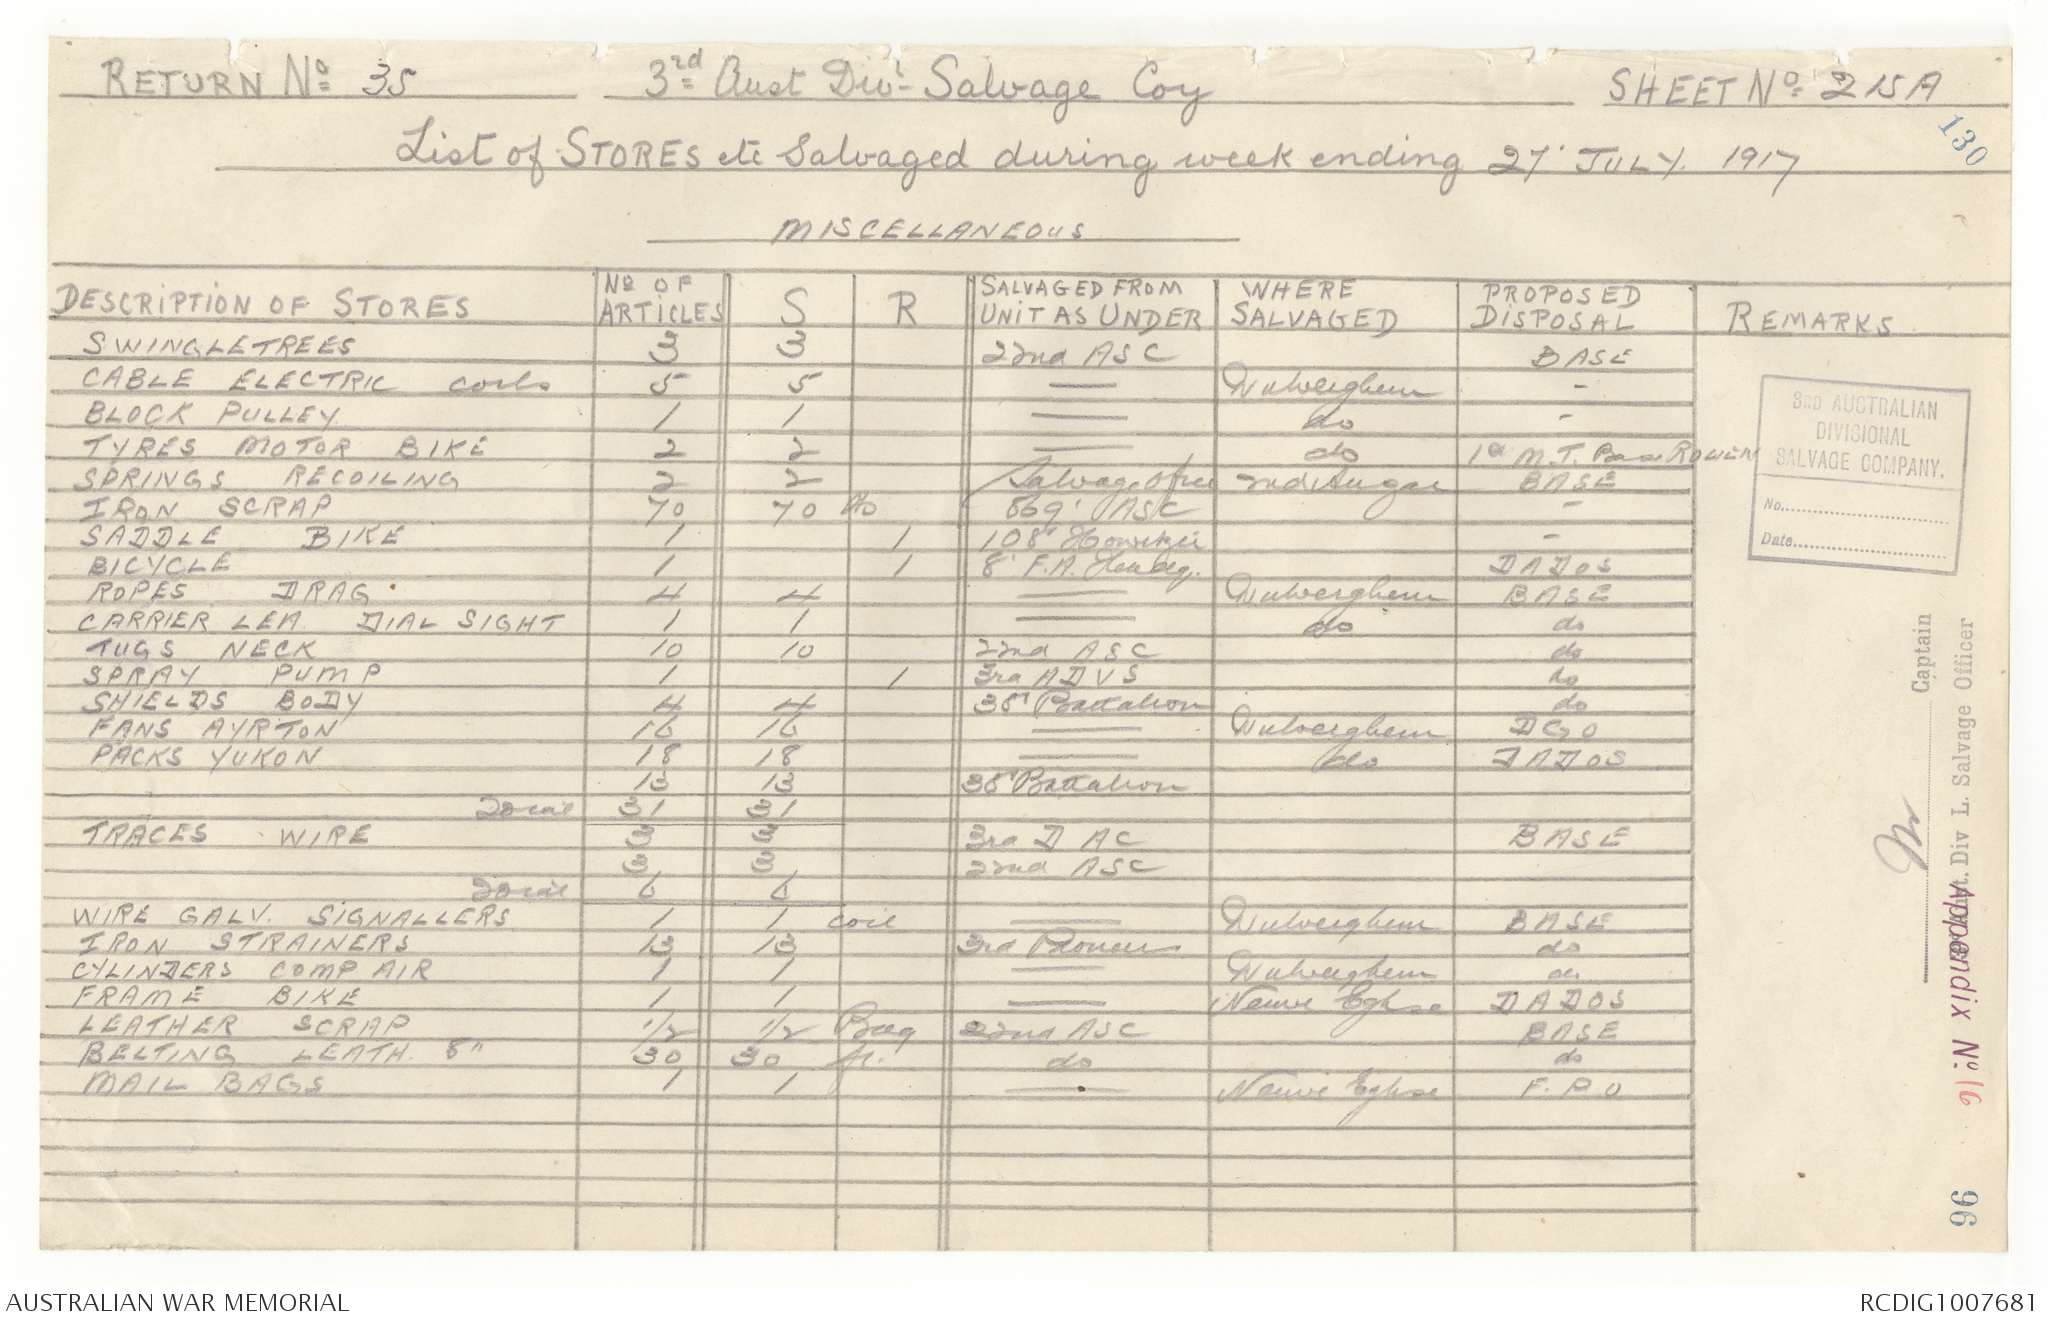 RETURN No 35 3rd Aust Div'l Salvage Coy SHEET No 215A
130
List of STORES etc Salvaged during week ending 27' JULY. 1917
MISCELLANEOUS
DESCRIPTION OF STORES No OF ARTICLES S R SALVAGED FROM UNIT AS UNDER WHERE SALVAGED PROPOSED DISPOSAL REMARKS
SWINGLETREES 3 3 22nd ASC BASE
CABLE ELECTRIC coils 5 5 — Wulverghem -
BLOCK PULLEY 1 1 — do -
TYRES MOTOR BIKE 2 2 — do 1st M.T. Base ROUEN
SPRINGS RECOILING 2 2 Salvage Officer BASE
IRON SCRAP 70 70 lb 869' ASC -
SADDLE BIKE 1 1 108' Howitzer -
BICYCLE 1 1 8' F.A. DADOS
ROPES DRAG 4 4 — Wulverghem BASE
CARRIER LEA. DIAL SIGHT 1 1 — do do
TUGS NECK 10 10 22nd ASC do
SPRAY PUMP 1 1 3rd ADVS do
SHIELDS BODY 4 4 38' Battalion do
FANS AYRTON 16 16 — Wulverghem DGO
PACKS YUKON 18 18 — do DADOS
13 13 38' Battalion
Total 31 31
TRACES WIRE 3 3 3rd D AC BASE
3 3 22nd ASC
Total 6 6
WIRE GALV. SIGNALLERS 1 1 coil — Wulverghem BASE
IRON STRAINERS 13 13 3rd Pioneers do
CYLINDERS COMP AIR 1 1 — Wulverghem do
FRAME BIKE 1 1 — Neuve Eglise DADOS
LEATHER SCRAP 1/2 1/2 Bag 22nd ASC BASE
BELTING LEATH. 8" 30 30 ft. do do
MAIL BAGS 1 1 — Neuve Eglise F.P.O
3RD AUSTRALIAN
DIVISIONAL
SALVAGE COMPANY.
No.
Date
Captain
Div L. Salvage Officer
Appendix No. 16
96
AUSTRALIAN WAR MEMORIAL RCDIG1007681